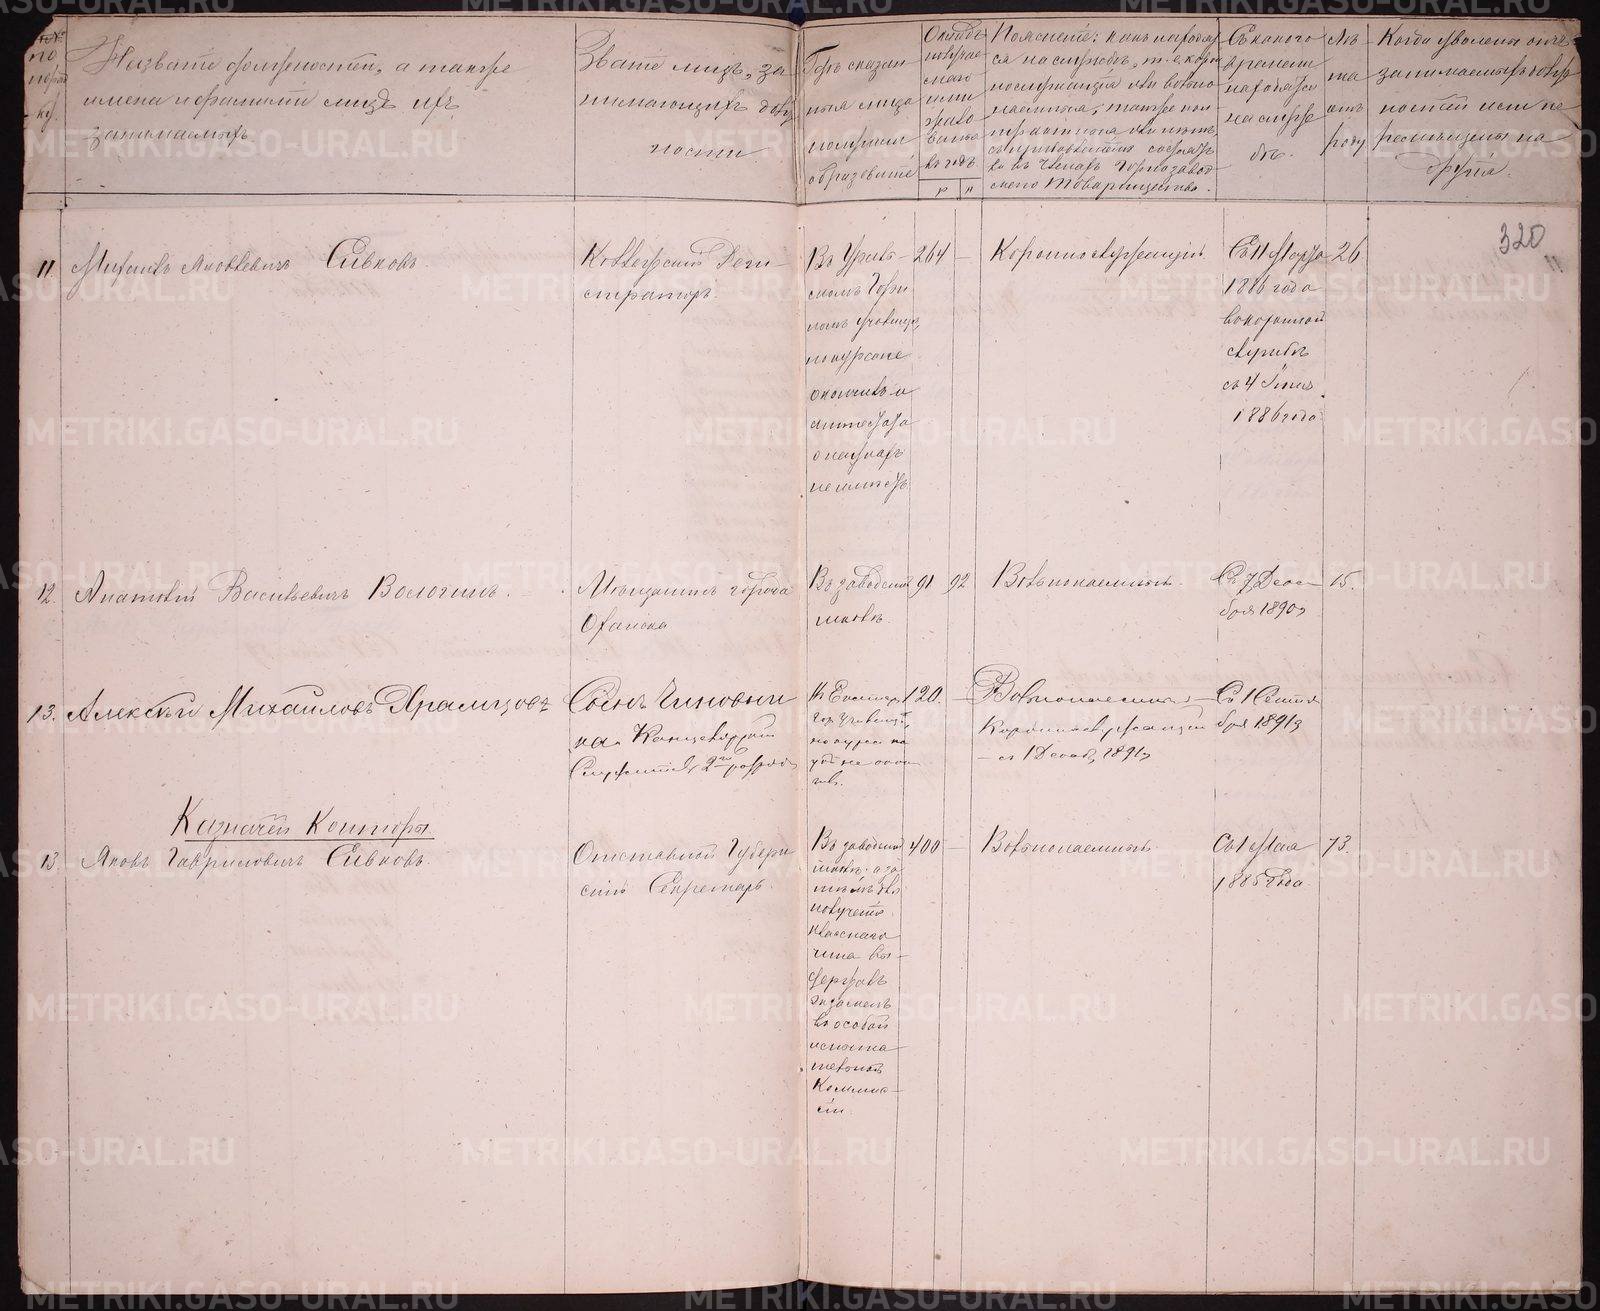 №№
по
поряд
ку.
Названіе должностей, а также
имена и фамиліи лицъ ихъ
занимаемыхъ
Званіе лицъ, за
нимающихъ долж
ности
Гдѣ сказан
ныя лица
получили
образованіе
Окладъ
содержа
нія
въ годъ
р
к
Поясненіе: какъ находят
ся на службѣ, т. е. корон
нослужащіе или вольно
наемные, также кон
трактные или нѣтъ
ва въ членахъ Горнозавод
скаго Товарищества.
Съ какого
времени
находятся
на служ
бѣ.
Лѣ
та
отъ
роду
Когда уволены отъ
занимаемыхъ долж
ностей или пе
ремѣщены на
другія.
320
11. Михаилъ Яковлевичъ Сивковъ.
Коллежскій Реги
страторъ.
Въ Ураль
скомъ Горн
номъ училищѣ,
но курса не
окончилъ и
аттестата
о наукахъ
не имѣетъ
264 —
Коронно служащій.
Съ 11 Марта
1886 года
въ коронной
службѣ
съ 4 Іюня
1886 года
26
12. Анатолій Васильевичъ Вологинъ.
Мѣщанинъ города
Оханска
Въ заводской
школѣ.
91 92
Вольнонаемный.
Съ 7 Декаб
бря 1890 г
15.
13. Алексѣй Михайловъ Храмцовъ
Сынъ Чиновни
ка Канцелярскій
Служитель 2го разряда
Въ Екатер.
гор. училищѣ,
но курса на
укъ не окон
чилъ.
120. —
Вольнонаемный —
Коронно служащій
— съ 1 Декаб. 1891 г
Съ 1 Сентя
бря 1891 г
Казначей Конторы
13. Яковъ Гавриловичъ Сивковъ.
Отставной Губерн
скій Секретарь.
Въ заводской
школѣ, а за
тѣмъ для
полученія
класснаго
чина вы-
держалъ
экзаменъ
въ особой
испыта
тельной
Коммис-
сіи.
400 —
Вольнонаемный
Съ 1 Мая
1885 года
73.
METRIKI.GASO-URAL.RU